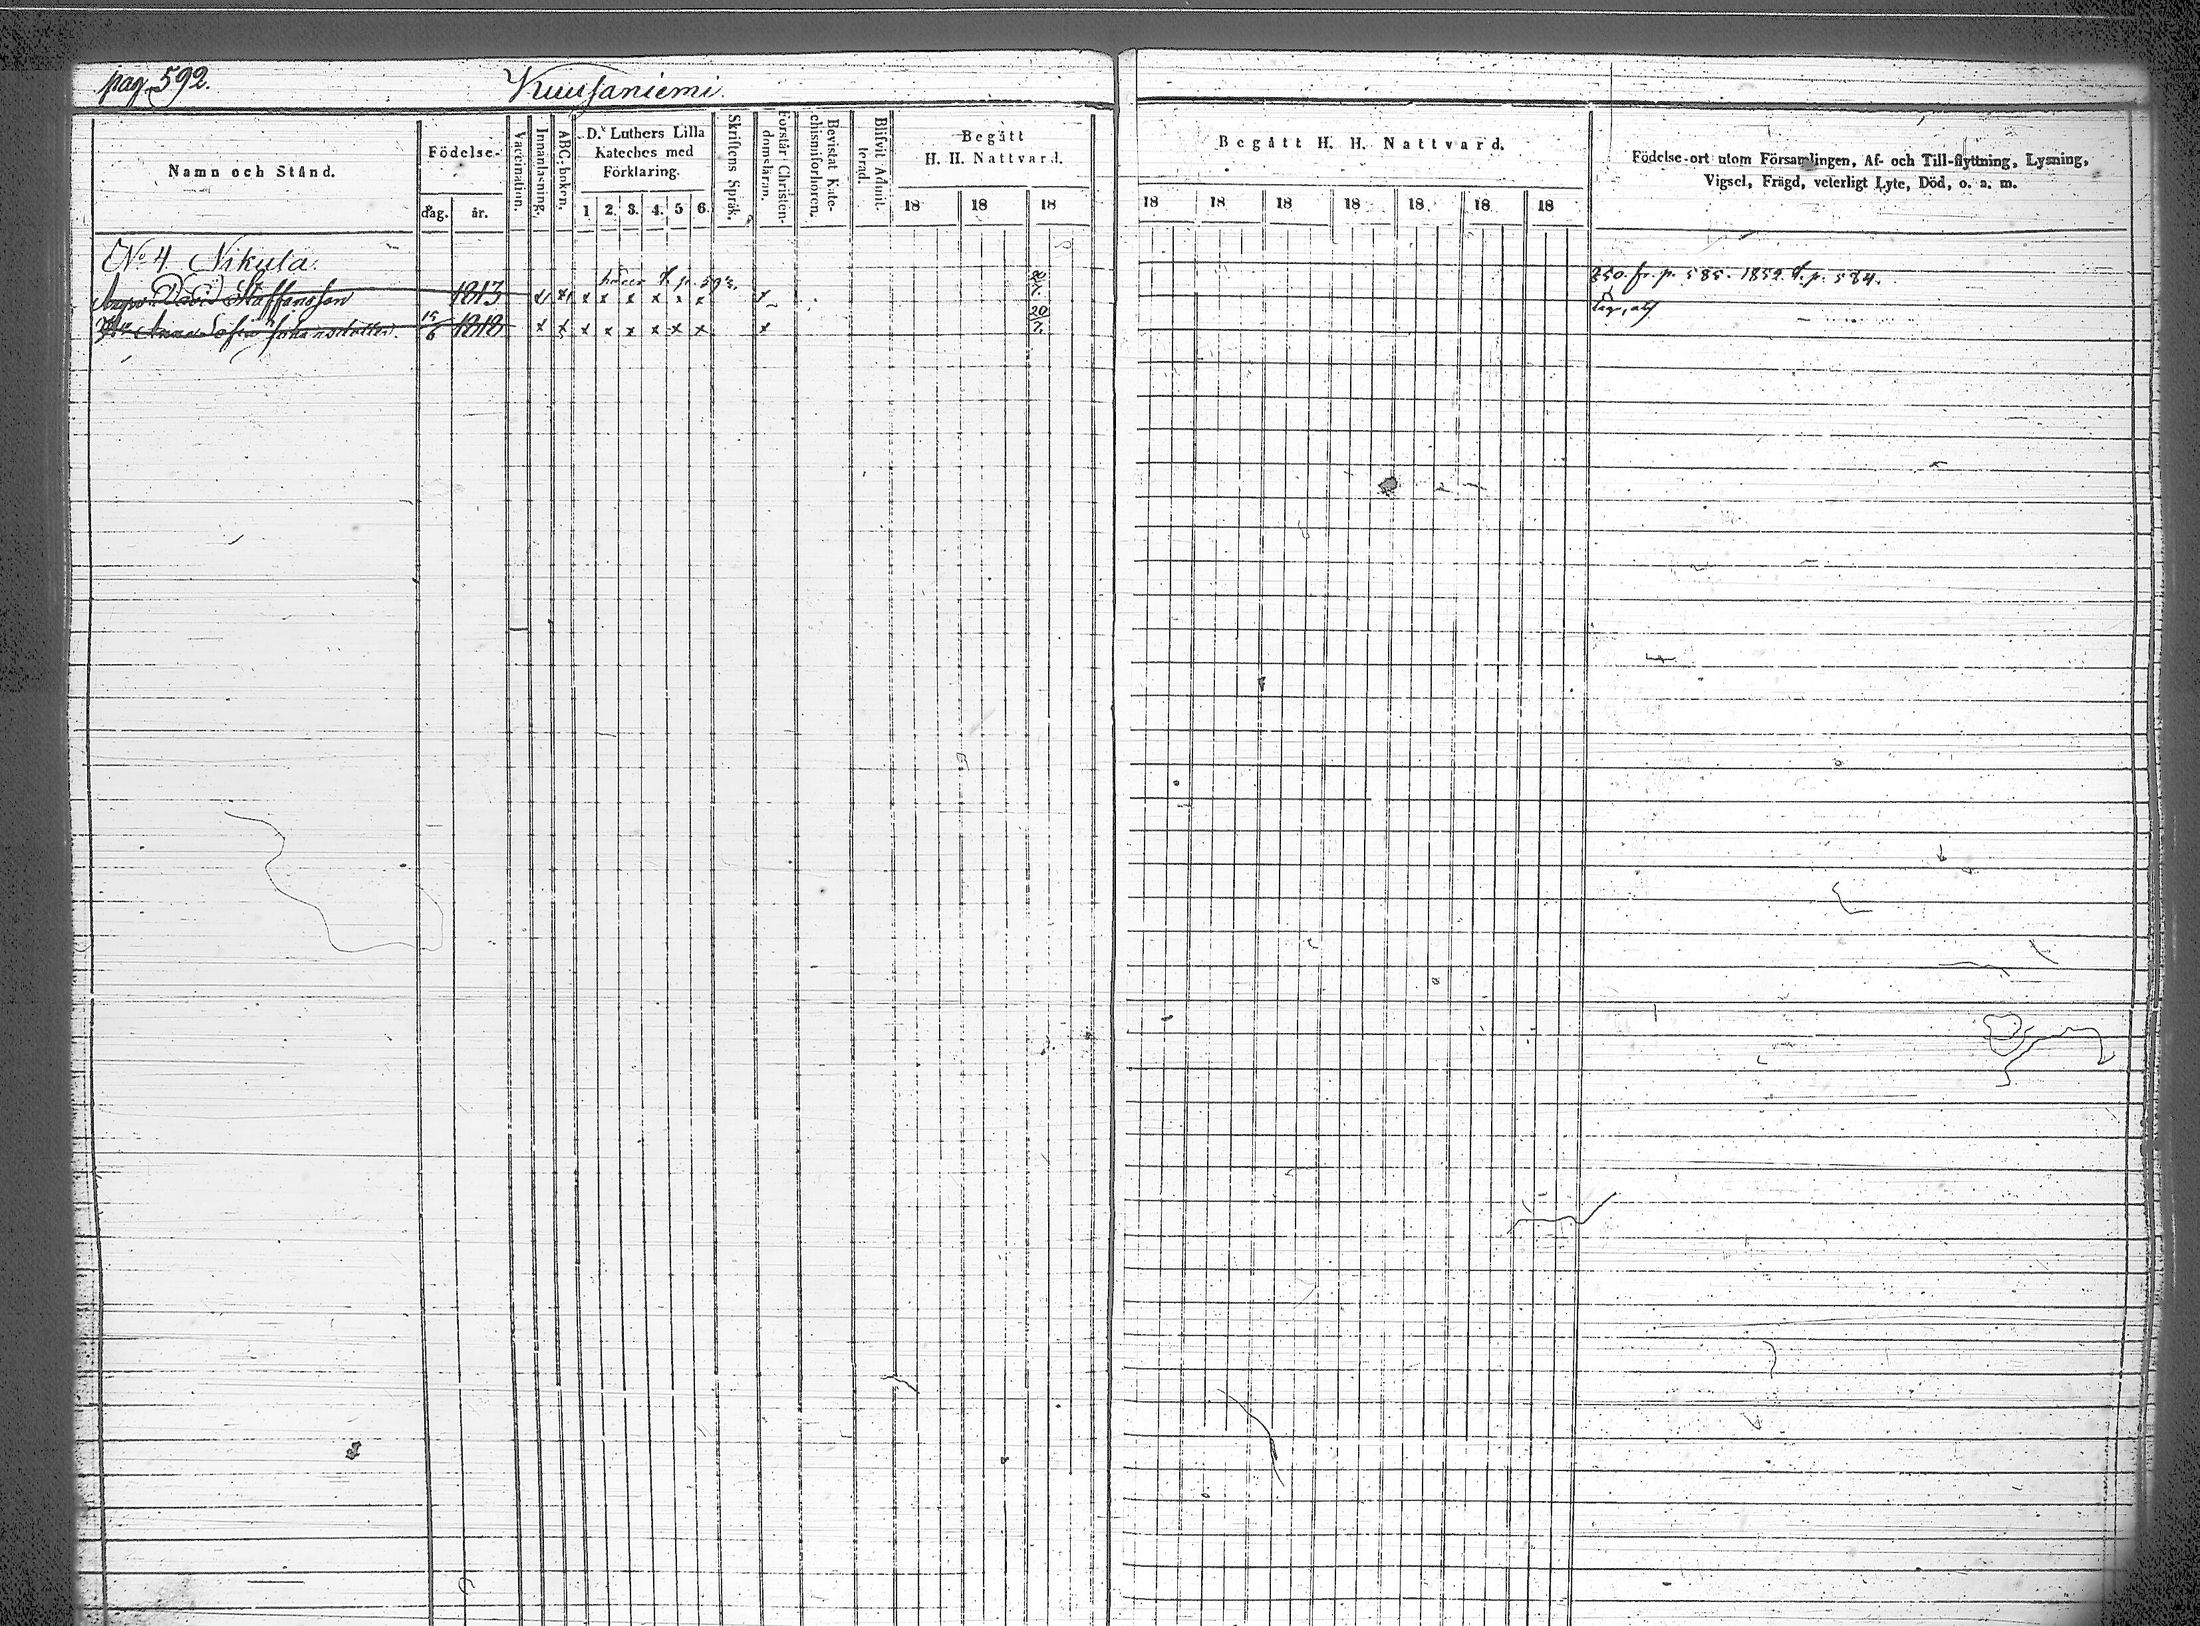 pag. 592.
Kuusaniemi.
Namn och Stånd.
Födelse-
dag.
år.
Vaccination.
Innanläsning.
ABC-boken.
D:r Luthers Lilla
Kateches med
Förklaring.
1 2. 3. 4. 5 6.
Skriftens Språk.
Förstår Christen-
domsläran.
Bevistat Kate-
chismiförhören.
Blifvit Admit-
terad.
Begått
H. H. Nattvard.
18 18 18
Begått H. H. Nattvard.
18 18 18 18 18 18 18
Födelse-ort utom Församlingen, Af- och Till-flyttning, Lysning,
Vigsel, Frägd, veterligt Lyte, Död, o. a. m.
No 4 Nikula.
David Staffansson 1813 x x x x x x x x x
fr. p. 585. 1852 t. p. 584.
Anna Sofia Johansdotter. 1818 x x x x x x x x x 20/7.